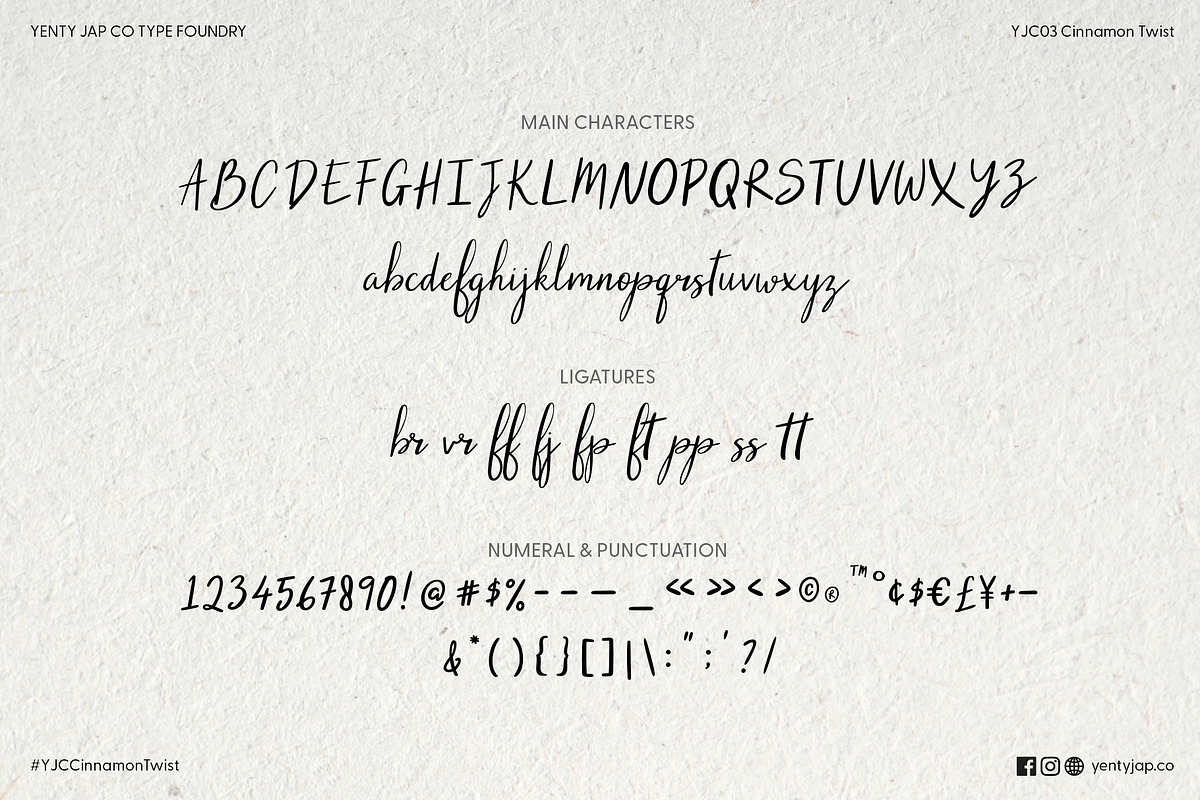 YENTY JAP CO TYPE FOUNDRY
YJC03 Cinnamon Twist
MAIN CHARACTERS
ABCDEFGHIJKLMNOPQRSTUVWXYZ
abcdefghijklmnopqrstuvwxyz
LIGATURES
br vr ff fj fp ft pp ss tt
NUMERAL & PUNCTUATION
1234567890!@#$%-–—_«»<>©®™°¢$€£¥+−
&*(){}[]|\:";'?/
#YJCCinnamonTwist
yentyjap.co